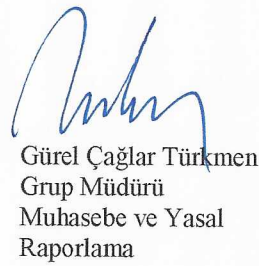 Gürel Çağlar Türkmen
Grup Müdürü
Muhasebe ve Yasal
Raporlama